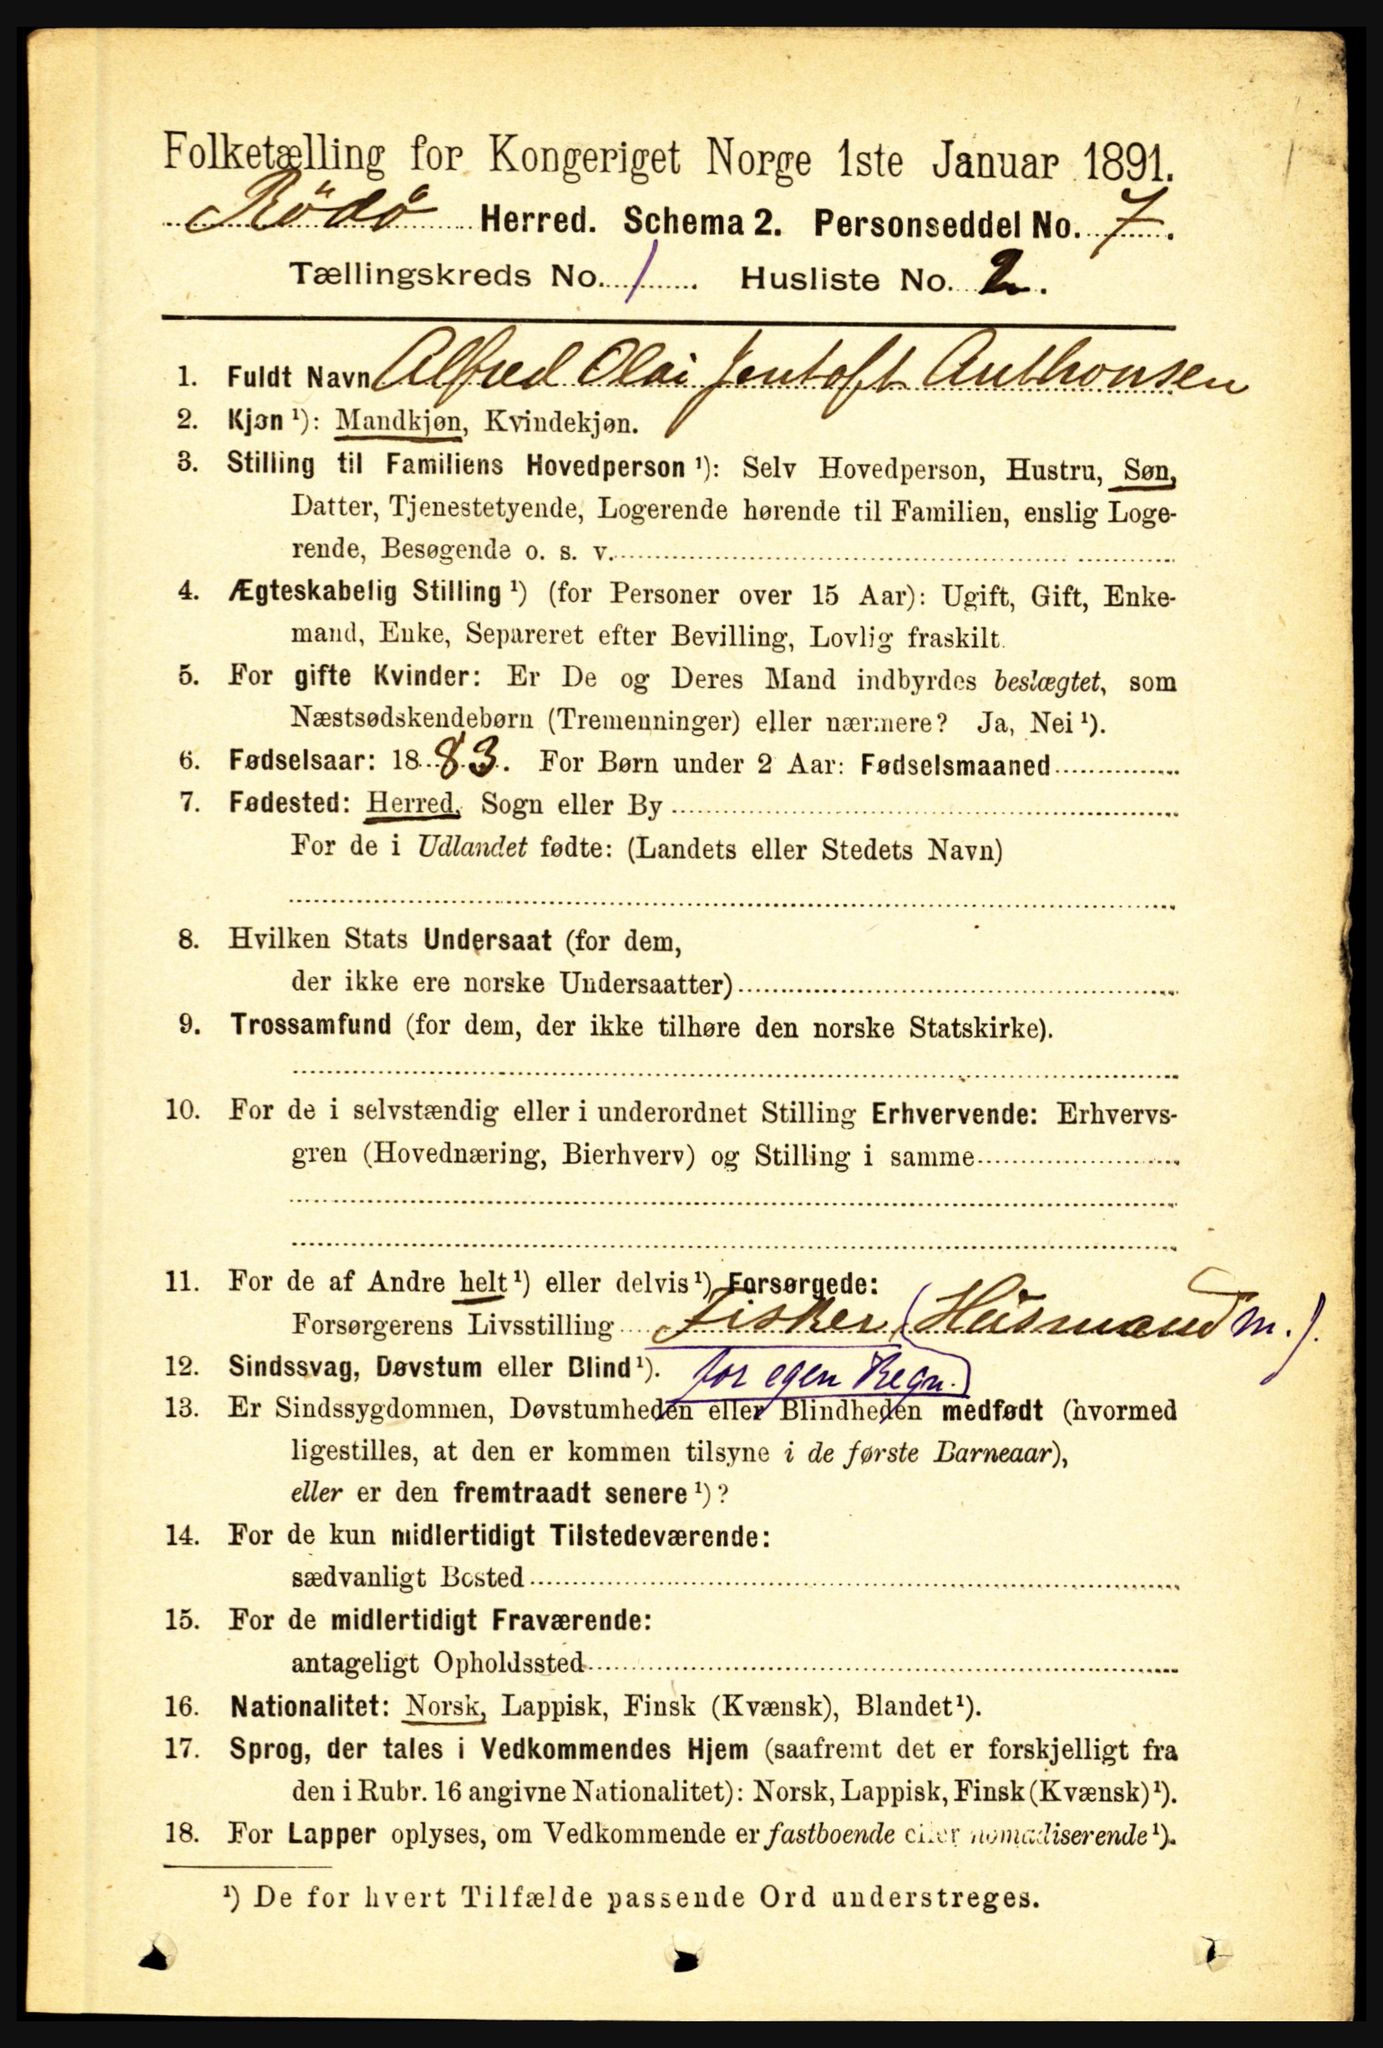 Folketælling for Kongeriget Norge 1ste Januar 1891.
Rödö Herred. Schema 2. Personseddel No. 7.
Tællingskreds No. 1. Husliste No. 2.
1. Fuldt Navn Alfred Olai Jentoft Anthonsen
2. Kjøn ¹): Mandkjøn, Kvindekjøn.
3. Stilling til Familiens Hovedperson ¹): Selv Hovedperson, Hustru, Søn,
Datter, Tjenestetyende, Logerende hørende til Familien, enslig Loge-
rende, Besøgende o. s. v.
4. Ægteskabelig Stilling ¹) (for Personer over 15 Aar): Ugift, Gift, Enke-
mand, Enke, Separeret efter Bevilling, Lovlig fraskilt.
5. For gifte Kvinder: Er De og Deres Mand indbyrdes beslægtet, som
Næstsødskendebørn (Tremenninger) eller nærmere? Ja, Nei ¹).
6. Fødselsaar: 1883. For Børn under 2 Aar: Fødselsmaaned
7. Fødested: Herred, Sogn eller By
For de i Udlandet fødte: (Landets eller Stedets Navn)
8. Hvilken Stats Undersaat (for dem,
der ikke ere norske Undersaatter)
9. Trossamfund (for dem, der ikke tilhøre den norske Statskirke).
10. For de i selvstændig eller i underordnet Stilling Erhvervende: Erhvervs-
gren (Hovednæring, Bierhverv) og Stilling i samme
11. For de af Andre helt ¹) eller delvis ¹) Forsørgede:
Forsørgerens Livsstilling Fisker, (Husmand m. J.)
12. Sindssvag, Døvstum eller Blind ¹). for egen Regn.
13. Er Sindssygdommen, Døvstumheden eller Blindheden medfødt (hvormed
ligestilles, at den er kommen tilsyne i de første Barneaar),
eller er den fremtraadt senere ¹)?
14. For de kun midlertidigt Tilstedeværende:
sædvanligt Bosted
15. For de midlertidigt Fraværende:
antageligt Opholdssted
16. Nationalitet: Norsk, Lappisk, Finsk (Kvænsk), Blandet ¹).
17. Sprog, der tales i Vedkommendes Hjem (saafremt det er forskjelligt fra
den i Rubr. 16 angivne Nationalitet): Norsk, Lappisk, Finsk (Kvænsk) ¹).
18. For Lapper oplyses, om Vedkommende er fastboende eller nomadiserende ¹).
¹) De for hvert Tilfælde passende Ord understreges.